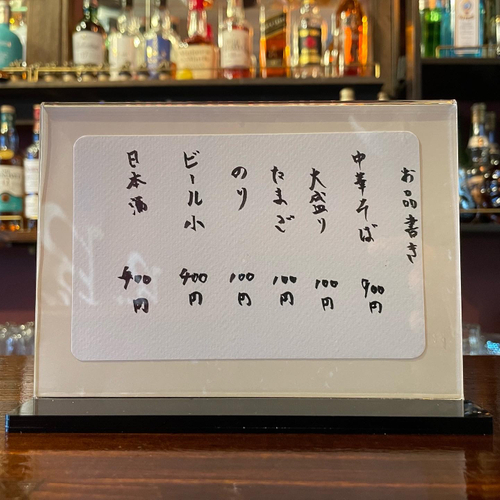 お品書き
中華そば 900円
大盛り 100円
たまご 100円
のり 100円
ビール小 400円
日本酒 400円